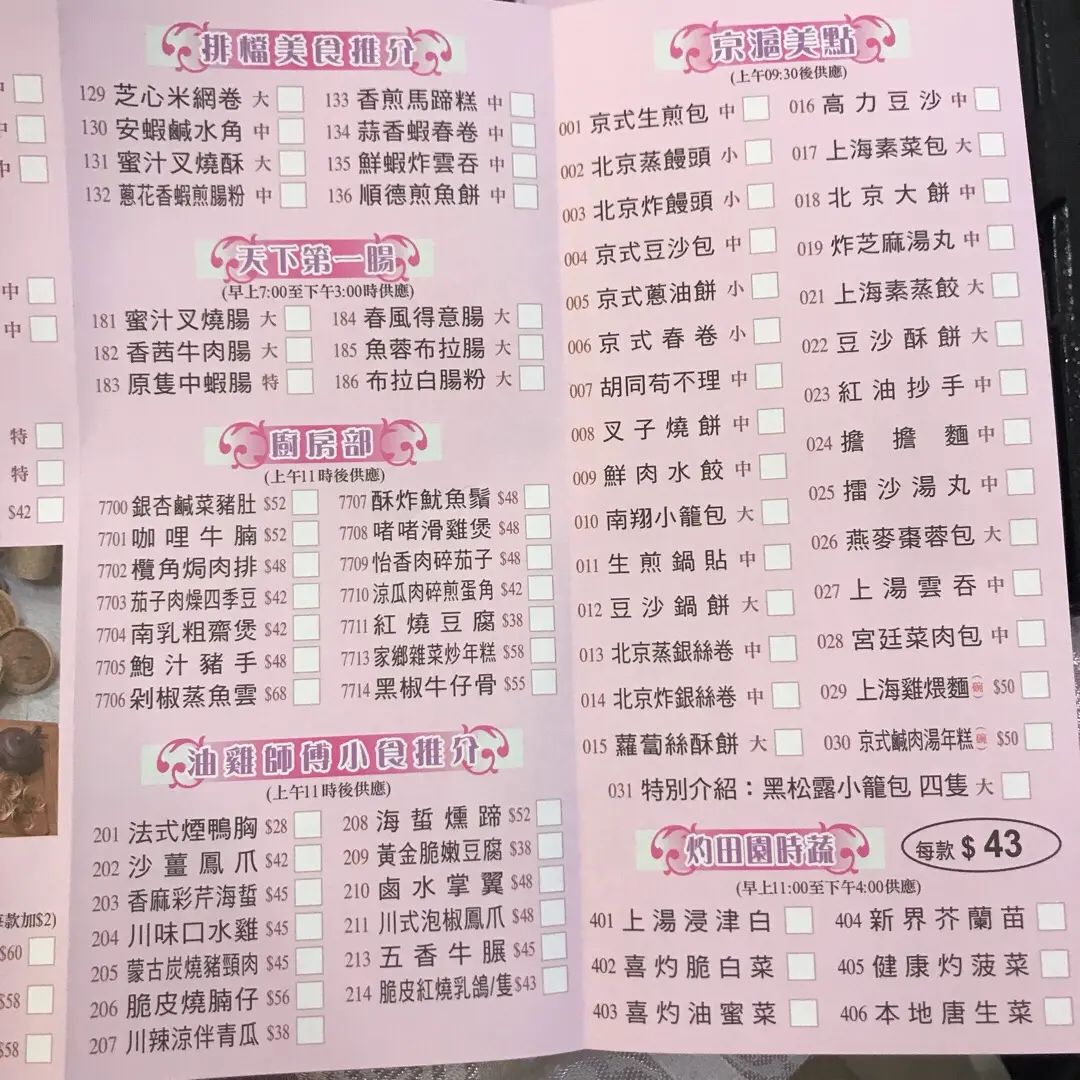 中
中
中
中
中
特
特
$42
款加$2)
$60
$58
$58
排檔美食推介
129 芝心米網卷 大
130 安蝦鹹水角 中
131 蜜汁叉燒酥 大
132 蔥花香蝦煎腸粉 中
133 香煎馬蹄糕 中
134 蒜香蝦春卷 中
135 鮮蝦炸雲吞 中
136 順德煎魚餅 中
天下第一腸
(早上7:00至下午3:00時供應)
181 蜜汁叉燒腸 大
182 香茜牛肉腸 大
183 原隻中蝦腸 特
184 春風得意腸 大
185 魚蓉布拉腸 大
186 布拉白腸粉 大
廚房部
(上午11時後供應)
7700 銀杏鹹菜豬肚 $52
7701 咖哩牛腩 $52
7702 欖角焗肉排 $48
7703 茄子肉燥四季豆 $42
7704 南乳粗齋煲 $42
7705 鮑汁豬手 $48
7706 剁椒蒸魚雲 $68
7707 酥炸魷魚鬚 $48
7708 啫啫滑雞煲 $48
7709 怡香肉碎茄子 $48
7710 涼瓜肉碎煎蛋角 $42
7711 紅燒豆腐 $38
7713 家鄉雜菜炒年糕 $58
7714 黑椒牛仔骨 $55
油雞師傅小食推介
(上午11時後供應)
201 法式煙鴨胸 $28
202 沙薑鳳爪 $42
203 香麻彩芹海蜇 $45
204 川味口水雞 $45
205 蒙古炭燒豬頸肉 $45
206 脆皮燒腩仔 $56
207 川辣涼伴青瓜 $38
208 海蜇燻蹄 $52
209 黃金脆嫩豆腐 $38
210 鹵水掌翼 $48
211 川式泡椒鳳爪 $48
213 五香牛𦟌 $45
214 脆皮紅燒乳鴿/隻 $43
京滬美點
(上午09:30後供應)
001 京式生煎包 中
002 北京蒸饅頭 小
003 北京炸饅頭 小
004 京式豆沙包 中
005 京式蔥油餅 小
006 京式春卷 小
007 胡同苟不理 中
008 叉子燒餅 中
009 鮮肉水餃 中
010 南翔小籠包 大
011 生煎鍋貼 中
012 豆沙鍋餅 大
013 北京蒸銀絲卷 中
014 北京炸銀絲卷 中
015 蘿蔔絲酥餅 大
016 高力豆沙 中
017 上海素菜包 大
018 北京大餅 中
019 炸芝麻湯丸 中
021 上海素蒸餃 大
022 豆沙酥餅 大
023 紅油抄手 中
024 擔擔麵 中
025 擂沙湯丸 中
026 燕麥棗蓉包 大
027 上湯雲吞 中
028 宮廷菜肉包 中
029 上海雞煨麵(碗) $50
030 京式鹹肉湯年糕(碗) $50
031 特別介紹：黑松露小籠包 四隻 大
灼田園時蔬
每款 $ 43
(早上11:00至下午4:00供應)
401 上湯浸津白
402 喜灼脆白菜
403 喜灼油蜜菜
404 新界芥蘭苗
405 健康灼菠菜
406 本地唐生菜